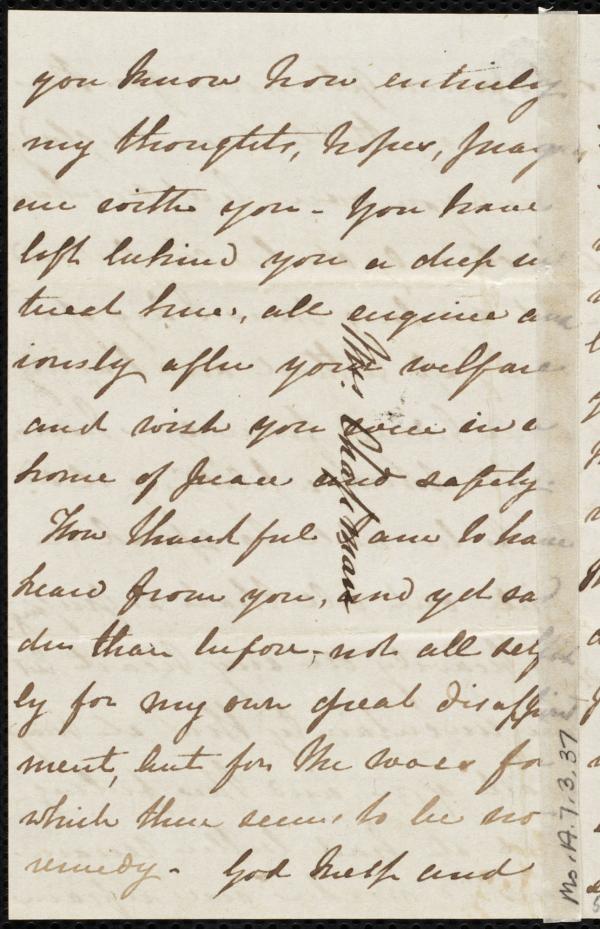 you know how entirely
my thoughts, hopes,
are with you - You have
left behind you a deep in
terest here, all enquire anx
iously after your welfare
and wish you were in a
home of peace and safety.
How thankful I am to have
heard from you, and yet sad
der than before, not all self
ly for my own great disappoint
ment, but for the woes for
which there seems to be no
remedy - God help and
Mrs. Chapman
Ms. A. 7. 3. 37